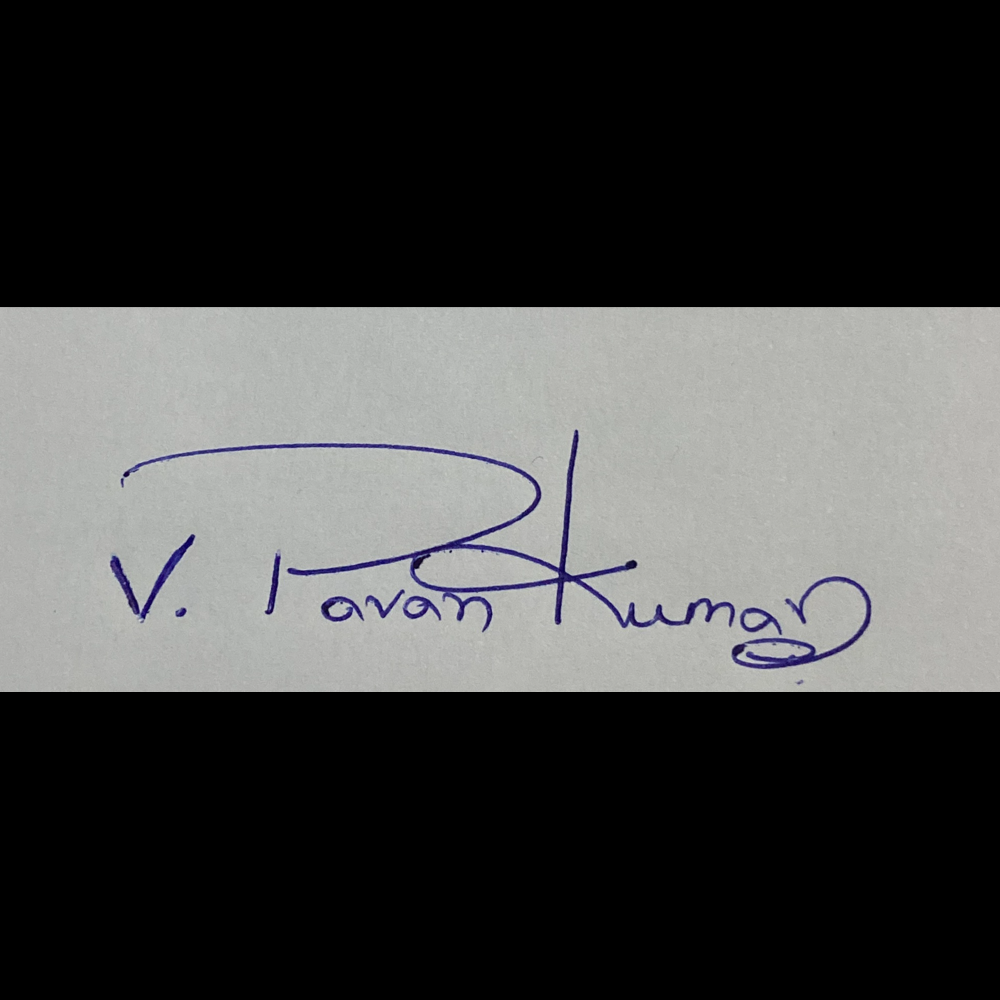 V. Pavan Kumar